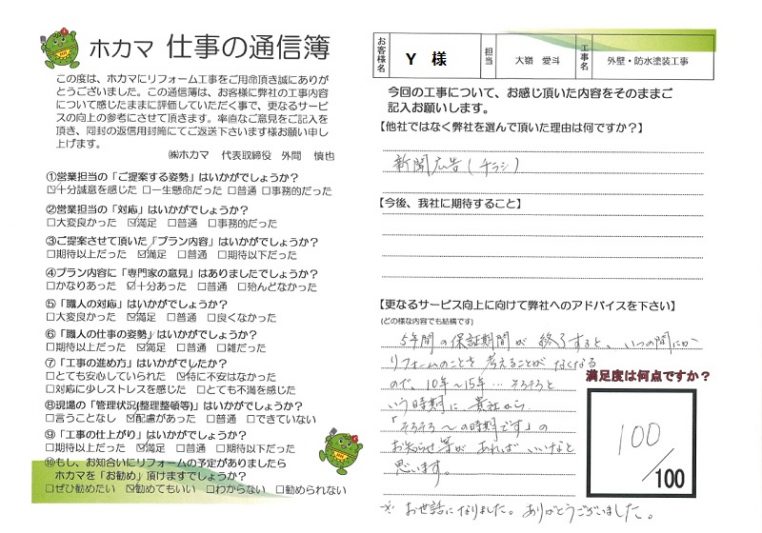 ホカマ 仕事の通信簿
この度は、ホカマにリフォーム工事をご用命頂き誠にありが
とうございました。この通信簿は、お客様に弊社の工事内容
について感じたままに評価していただく事で、更なるサービ
スの向上の参考にさせて頂きます。率直なご意見をご記入を
頂き、同封の返信用封筒にてご返送下さいます様お願い申し
上げます。
㈱ホカマ 代表取締役 外間 慎也
①営業担当の「ご提案する姿勢」はいかがでしょうか?
☑十分誠意を感じた □一生懸命だった □普通 □事務的だった
②営業担当の「対応」はいかがでしょうか?
□大変良かった ☑満足 □普通 □事務的だった
③ご提案させて頂いた「プラン内容」はいかがでしょうか?
□期待以上だった ☑満足 □普通 □期待以下だった
④プラン内容に「専門家の意見」はありましたでしょうか?
□かなりあった ☑十分あった □普通 □殆んどなかった
⑤「職人の対応」はいかがでしょうか?
□大変良かった ☑満足 □普通 □良くなかった
⑥「職人の仕事の姿勢」はいかがでしょうか?
□期待以上だった ☑満足 □普通 □雑だった
⑦「工事の進め方」はいかがでしたか?
□とても安心していられた ☑特に不安はなかった
□対応に少しストレスを感じた □とても不満を感じた
⑧現場の「管理状況(整理整頓等)」はいかがでしょうか?
□言うことなし ☑配慮があった □普通 □できていない
⑨「工事の仕上がり」はいかがでしょうか?
□期待以上だった ☑満足 □普通 □期待以下だった
⑩もし、お知合いにリフォームの予定がありましたら
ホカマを「お勧め」頂けますでしょうか?
□ぜひ勧めたい ☑勧めてもいい □わからない □勧められない
お客様名 Y 様 担当 大嶺 愛斗 工事名 外壁・防水塗装工事
今回の工事について、お感じ頂いた内容をそのままご
記入お願いします。
【他社ではなく弊社を選んで頂いた理由は何ですか?】
新聞広告(チラシ)
【今後、我社に期待すること】
【更なるサービス向上に向けて弊社へのアドバイスを下さい】
(どの様な内容でも結構です)
5年間の保証期間が終了すると、いつの間にか
リフォームのことを考えることがなくなる
ので、10年~15年…そろそろと
いう時期に貴社から
「そろそろ~の時期です」の
お知らせ等があればいいなと
思います。
満足度は何点ですか?
100
/100
※ お世話になりました。ありがとうございました。